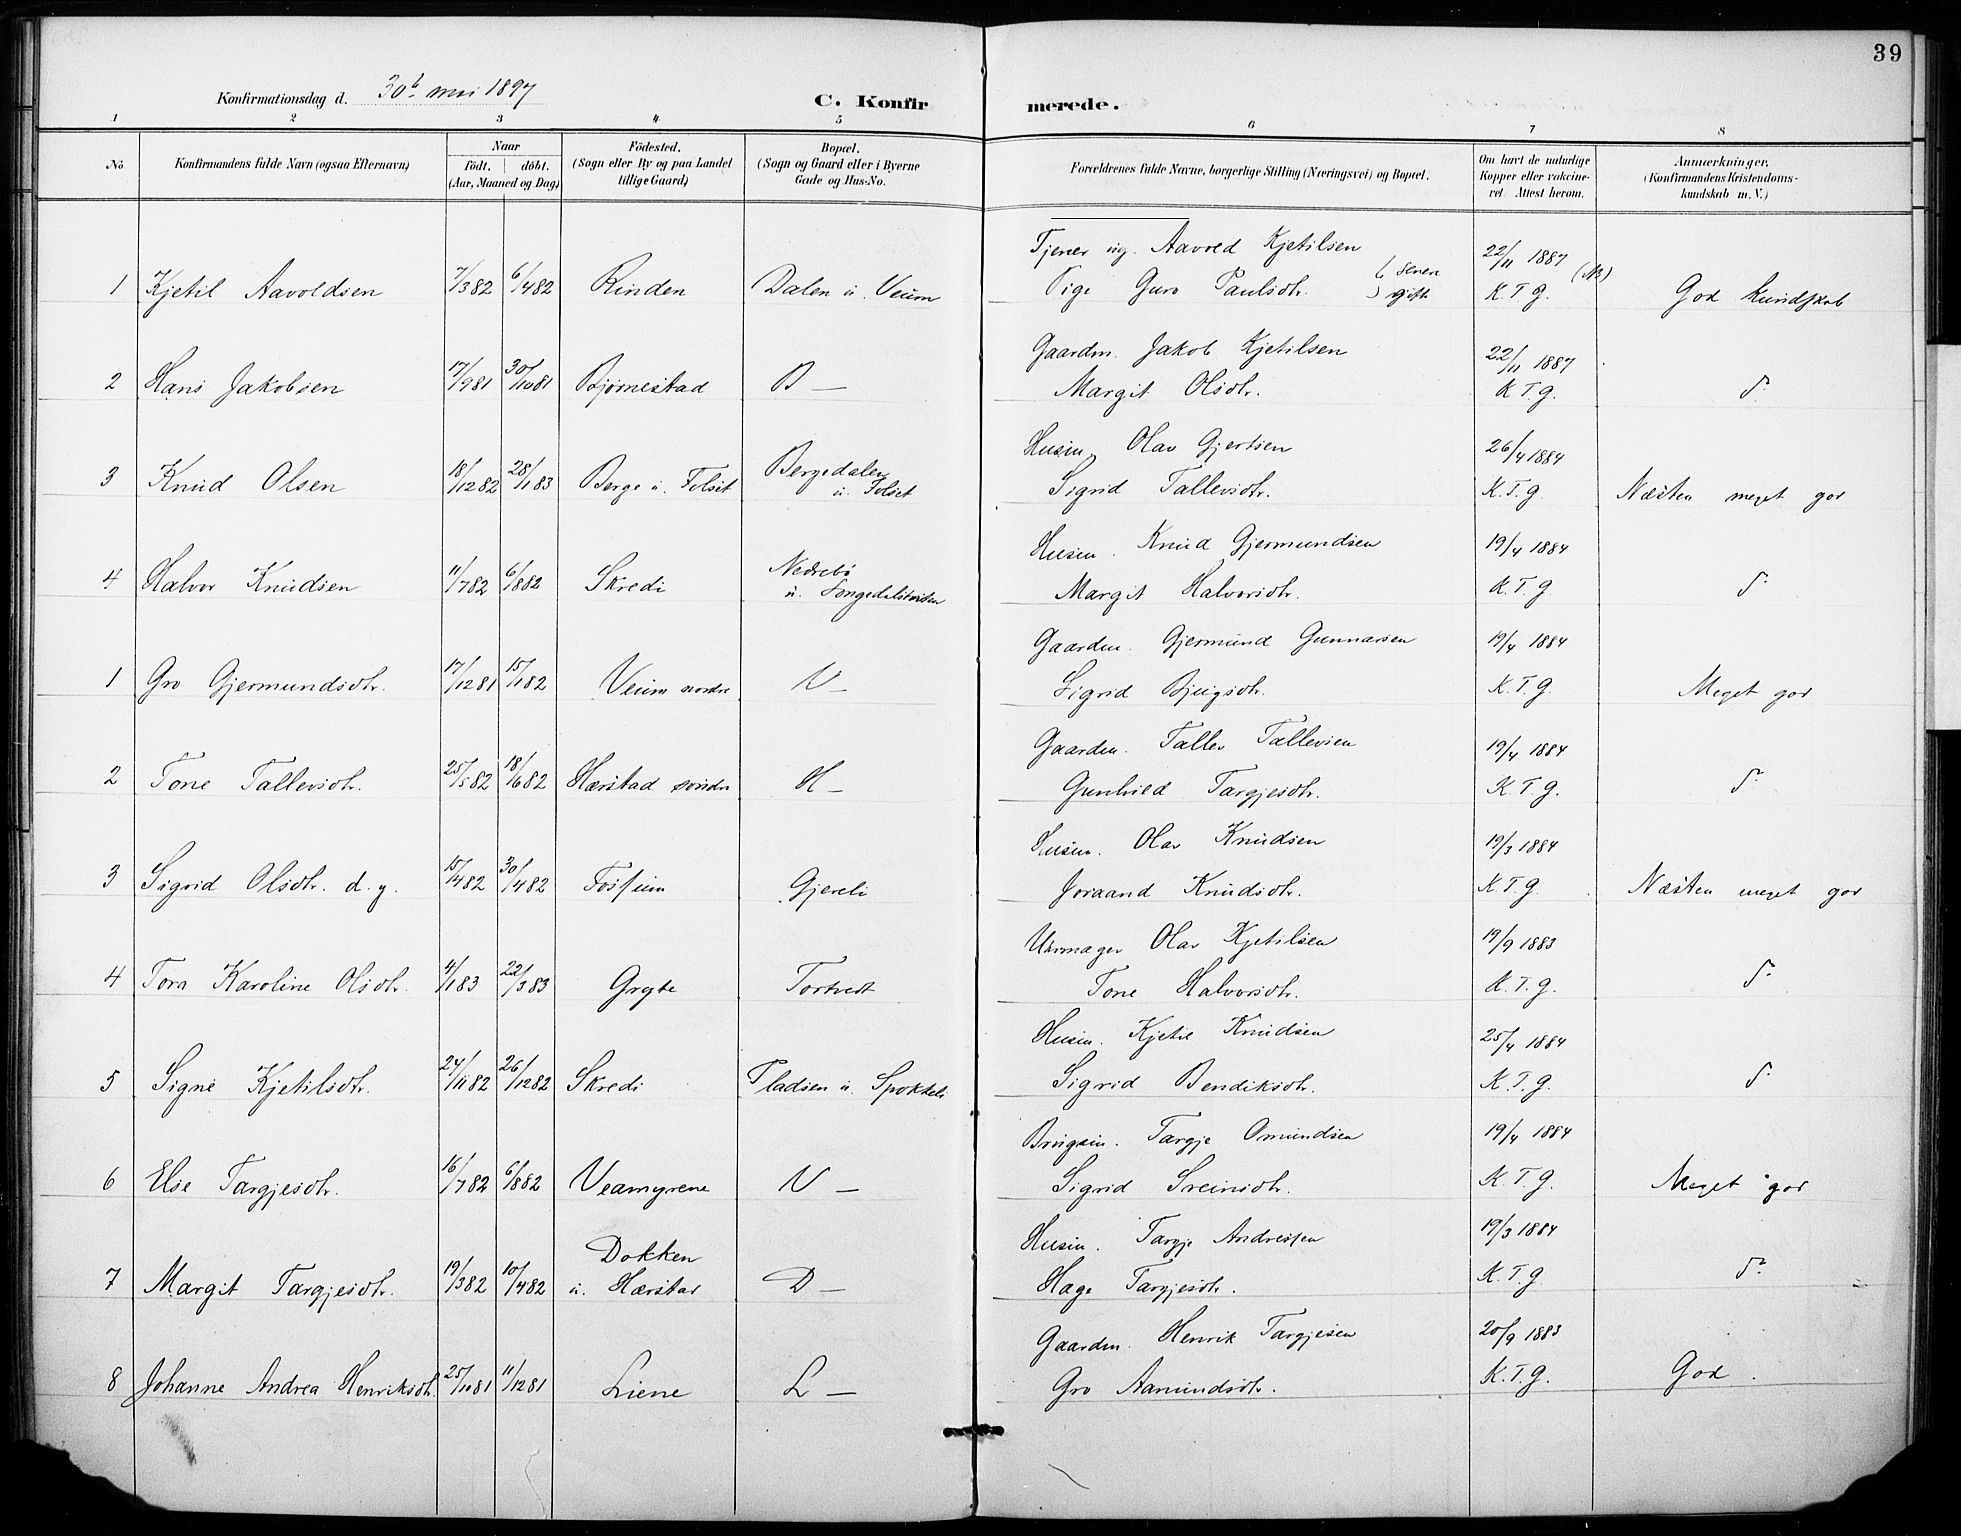 39
Konfirmationsdag d. 30t mai 1897
C. Konfirmerede.
1 2 3 4 5 6 7 8
No. Konfirmandens fulde Navn (ogsaa Efternavn) Naar födt. döbt. (Aar, Maaned og Dag) Födested. (Sogn eller By og paa Landet tillige Gaard) Bopæl. (Sogn og Gaard eller i Byerne Gade og Hus-No. Forældrenes fulde Navne, borgerlige Stilling (Næringsvei) og Bopæl. Om havt de naturlige Kopper eller vakcineret. Attest herom. Anmærkninger, (Konfirmandens Kristendomskundskab m. V.)
Tjener ug. Aavold Kjetilsen 22/11 1887
1 Kjetil Aavoldsen 7/3 82 6/4 82 Rinden Dalen u. Veum Pige Guro Paulsdtr. senere gift K. T. G. God kundskab
Gaardm. Jakob Kjetilsen 22/11 1887
2 Hans Jakobsen 17/9 81 30/10 81 Bjørnestad B — Margit Olsdtr. K T. G. do
Husm. Olav Gjertsen 26/4 1884
3 Knud Olsen 18/12 82 28/1 83 Berge u. Folset Bergedalen u. Folset Sigrid Tallevsdtr. K. T. G. Næsten meget god
Husm. Knud Gjermundsen 19/4 1884
4 Halvor Knudsen 11/7 82 6/8 82 Skredi Nedrebö u. Margit Halvorsdtr. K. T. G do
Gaardm. Gjermund Gunnarsen 19/4 1884
1 Gro Gjermundsdtr. 17/12 81 15/1 82 Veum nordre V — Sigrid Bjugsdtr. K. T. G. Meget god
Gaardm. Tallev Tallevsen 19/4 1884
2 Tone Tallevsdtr. 25/5 82 18/6 82 Hærstad søndre H — Gunhild Targjesdtr. K. T. G. do
Husm. Olav Knudsen 19/3 1884
3 Sigrid Olsdtr. d. y. 15/4 82 30/4 82 Fossum Gjereli Joraand Knudsdtr. K. T. G. Næsten meget god
Urmager Olav Kjetilsen 19/9 1883
4 Tora Karoline Olsdtr. 4/1 83 22/3 83 Gryte Tortvedt Tone Halvorsdtr. K. T. G. do
Husm. Kjetil Knudsen 25/4 1884
5 Signe Kjetilsdtr. 24/11 82 26/12 82 Skredi Pladsen u. Spokkeli Sigrid Bendiksdtr. K. T. G. do
Brugsm. Targje Omundsen 19/4 1884
6 Else Targjesdtr. 16/7 82 6/8 82 Veamyrene V — Sigrid Sveinsdtr. K. T. G. Meget god
Husm. Targje Andresen 19/3 1884
7 Margit Targjesdtr. 19/3 82 10/4 82 Dokken u. Hærstad D — Hæge Targjesdtr. K. T. G. do
Gaardm. Henrik Targjesen 20/9 1883
8 Johanne Andrea Henriksdtr. 25/10 81 11/12 81 Liene L — Gro Aamundsdtr. K. T. G. God.